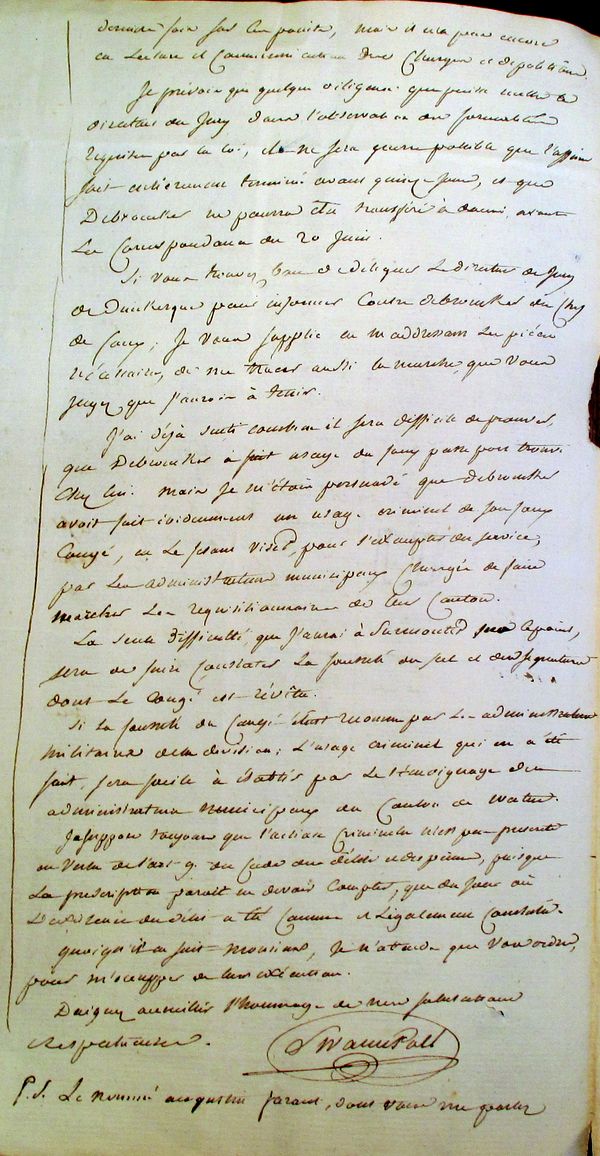 demain soir sur les points, mais il n'a pas encore
eu Lecture et Communication des Charges et dépositions.
Je prévois que quelque diligence que puisse mettre le
directeur du Jury dans l'observation des formalités
requises par la loi, il ne sera guerre possible que l'affaire
soit entièrement terminée avant quinze jours, et que
Debroucker ne pourra être transféré à avant
La Correspondance du 20 Juin.
Si vous trouvez bon de déléguer Le directeur du Jury
de Dunkerque pour informer Contre debroucker du Chef
de faux; Je vous supplie en m'addressant Les pièces
nécessaires, de me tracer aussi la marche que vous
jugez que j'aurois à tenir.
J'ai déjà senti combien il sera difficile de prouver,
que Debroucker a fait usage du faux passeport trouvé
Chez lui. mais Je m'étois persuadé que debroucker
avoit fait évidemment un usage criminel de son faux
Congé, en Le fesant viser, pour s'exempter du service,
par Les administrateurs municipaux Chargés de faire
marcher Les réquisitionnaires de leur Canton.
La seule difficulté que J'aurai à Surmonter sur ce point,
sera de faire Constater La fausseté du sel et des signatures
dont Le Congé est révêtu.
Si la fausseté du Congé étoit reconnue par Les administrateurs
militaires de la division; L'usage criminel qui en a été
fait, sera facile à établir par Le témoignage des
administrateurs municipaux du Canton de Watten.
Je suppose toujours que l'action Criminelle n'est pas prescrite
en Vertu de l'art. 9. du Code des délits et des peines, puisque
La prescription paroît ne devoir Compter, que du Jour où
L'existence du délit a été Connue et Légalement Constatée.
quoiqu'il en soit Monsieur, Je n'attends que vos ordres,
pour m'occuper de leur exécution.
Daignez accueillir l'hommage de mes salutations
respectueuses.
P.S. Le nommé augustin parant, dont vous me parlez